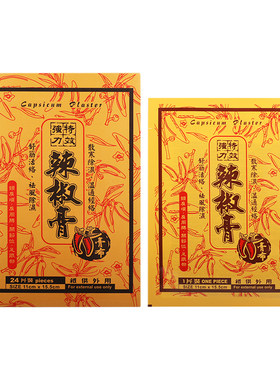 Capsicum Plaster
特效
強力
辣椒膏
舒筋活絡 祛風除濕
散寒除濕 溫通經絡
24片裝 pieces
SIZE 11cm x 15.5cm
祇供外用
For external use only
Capsicum Plaster
特效
強力
辣椒膏
舒筋活絡 祛風除濕
散寒除濕 溫通經絡
1片裝 ONE PIECE
SIZE 11cm x 15.5cm
祇供外用
For external use only